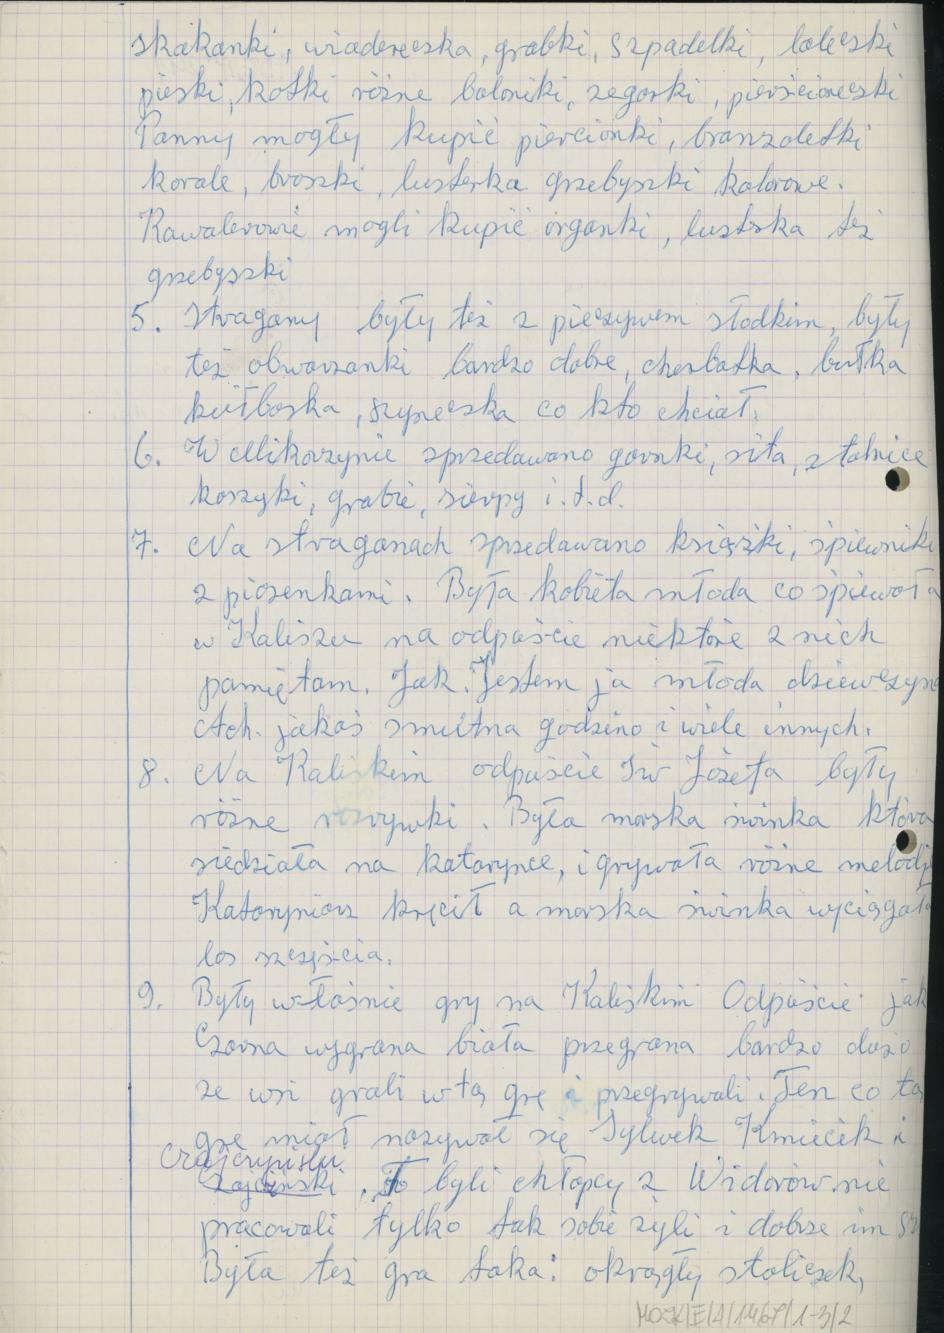 skakanki, wiadereczka, grabki, szpadelki, laleczki
pieski, kotki różne baloniki, zegarki, pierścioneczki
Panny mogły kupić piercionki, branzoletki
korale, broszki, lusterka grzebyszki kolorowe.
Kawalerowie mogli kupić organki, lusterka też
grzebyszki
5. Stragany były też z pieczywem słodkim, były
też obwarzanki bardzo dobre, cherbatka, bułka
kiełbaska, szyneczka co kto chciał.
6. W Mikorzynie sprzedawano garnki, sita, stolnice
koszyki, grabie, sierpy i.t.d.
7. Na straganach sprzedawano książki, śpiewniki
z piosenkami. Była kobieta młoda co śpiewała
w Kaliszu na odpuście niektóre z nich
pamiętam. Jak. Jestem ja młoda dziewczyna
Ach. jakaś smutna godzino i wiele innych.
8. Na Kaliskim odpuście Św Józefa były
różne rozrywki. Była morska świnka która
siedziała na katarynce, i grywała różne melodje
Kataryniarz kręcił a morska świnka wyciągała
los szczęścia.
9. Były właśnie gry na Kaliskim Odpuście jak
Czarna wygrana biała przegrana bardzo dużo
ze wsi grali w tą grę i przegrywali. Ten co tą
grę miał nazywał się Sylwek Kmiecik i
Czajczyński. To byli chłopcy z Widorów nie
pracowali tylko tak sobie żyli i dobrze im
Była też gra taka: okrągły stoliczek,
MOJK/E/A/1467/1-3/2